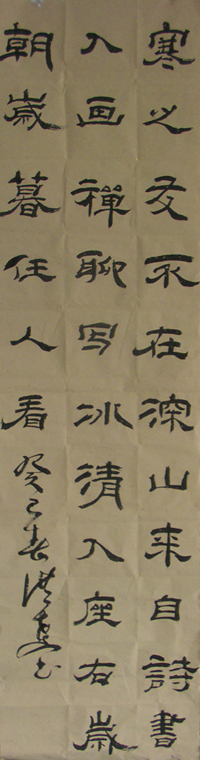 寒之友不在深山来自詩書
入画禪聊写冰清入座右歲
朝歲暮任人看
癸巳春